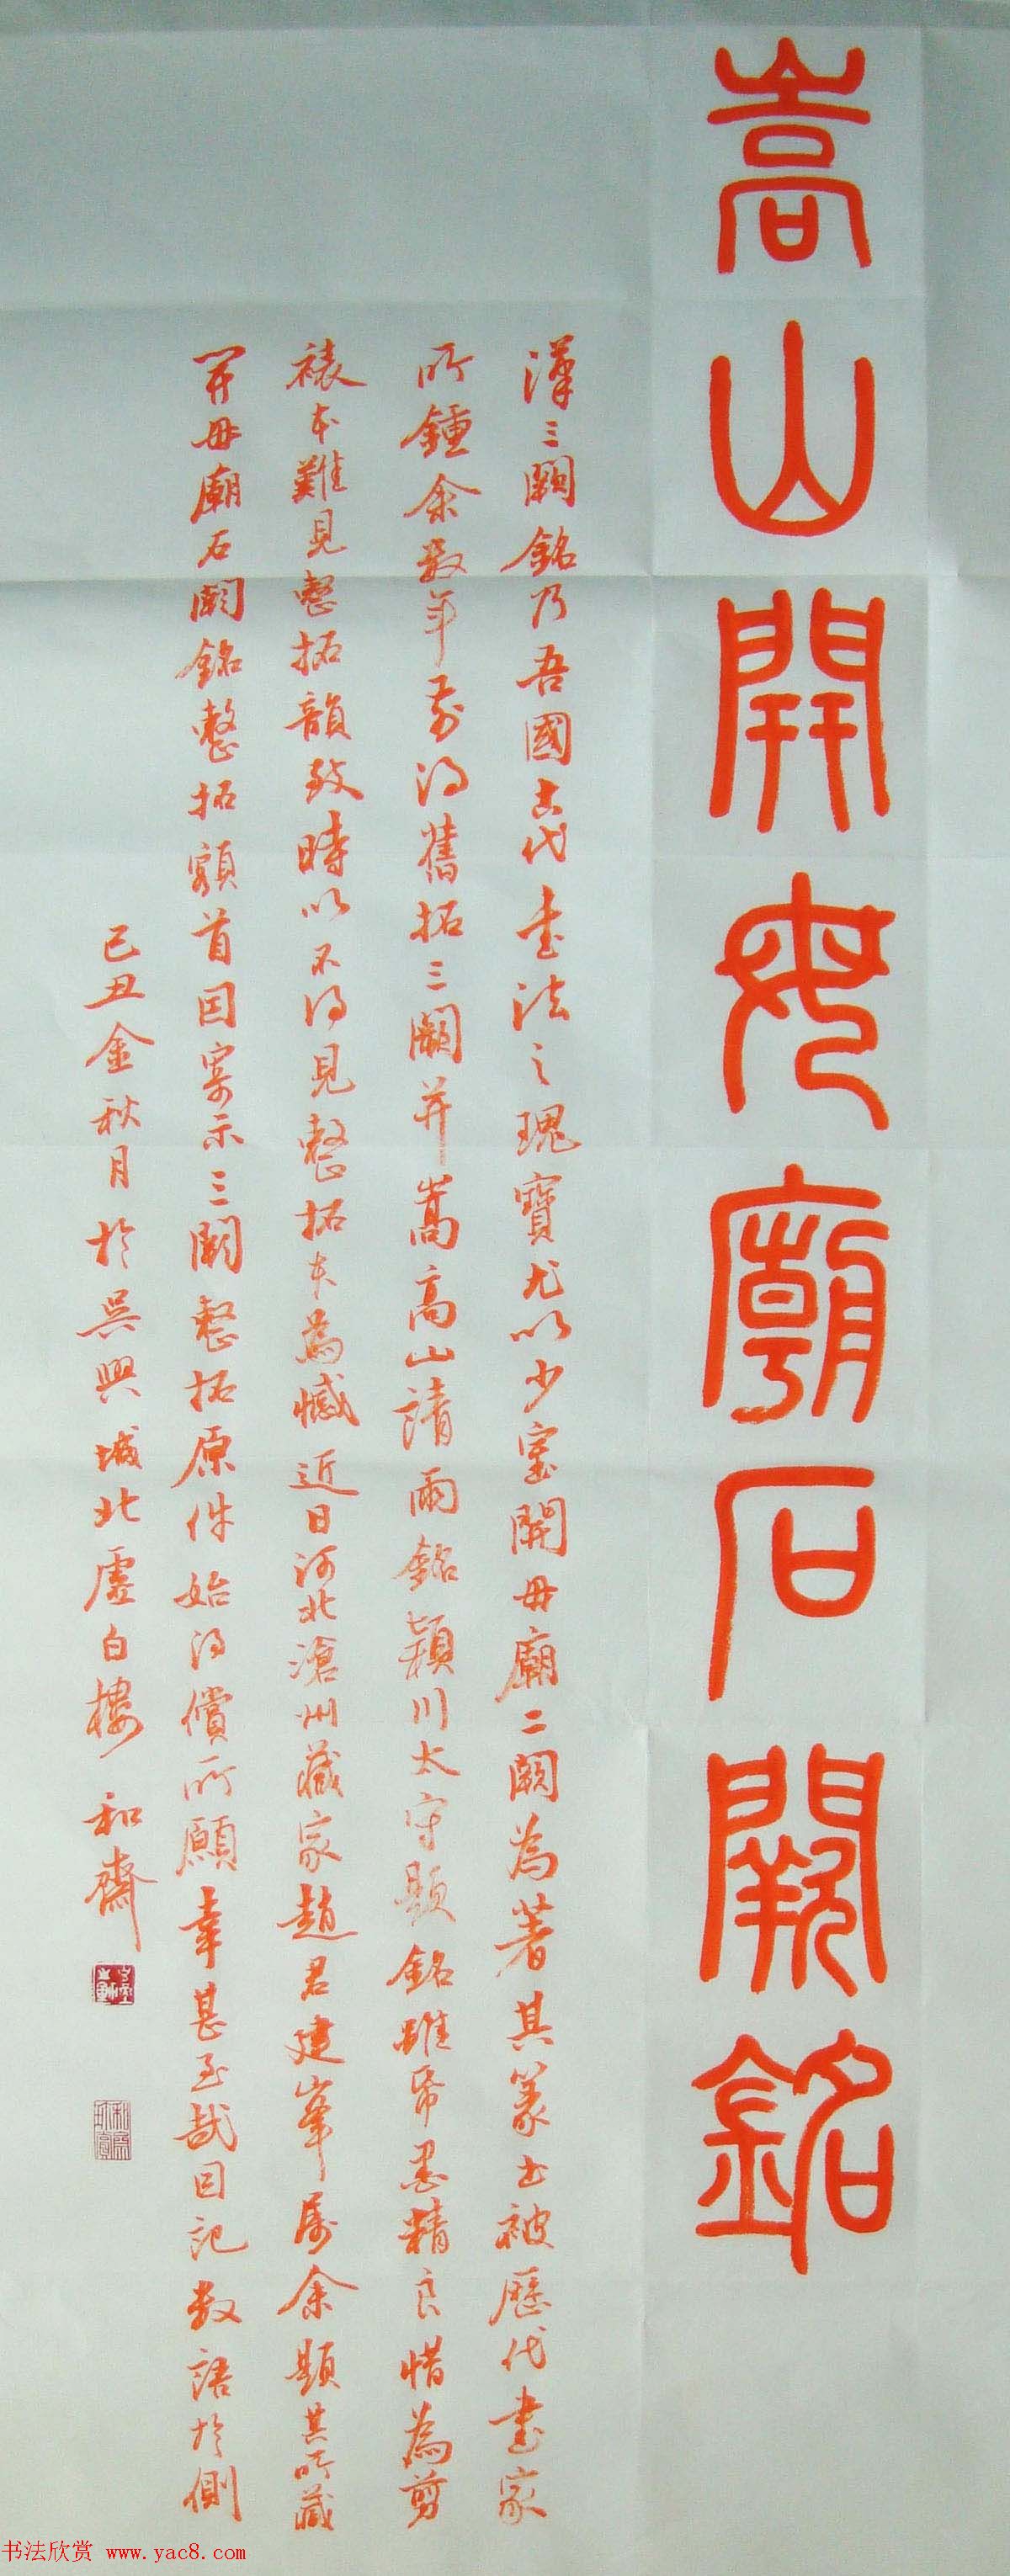 嵩山開母廟石闕銘
漢三闕銘乃吾國古代書法之瑰寶尤以少室開母廟二闕為著其篆書被歷代書家
所鍾余數年前得舊拓三闕并嵩高山請雨銘潁川太守題銘雖紙墨精良惜為剪
裱本難見整拓韻致時以不得見整拓本為憾近日河北滄州藏家趙君建峯屬余題其所藏
開母廟石闕銘整拓額首因寄示三闕整拓原件始得償所願幸甚至哉因記數語於側
己丑金秋月於吳興城北虛白樓和齋
书法欣赏 www.yac8.com